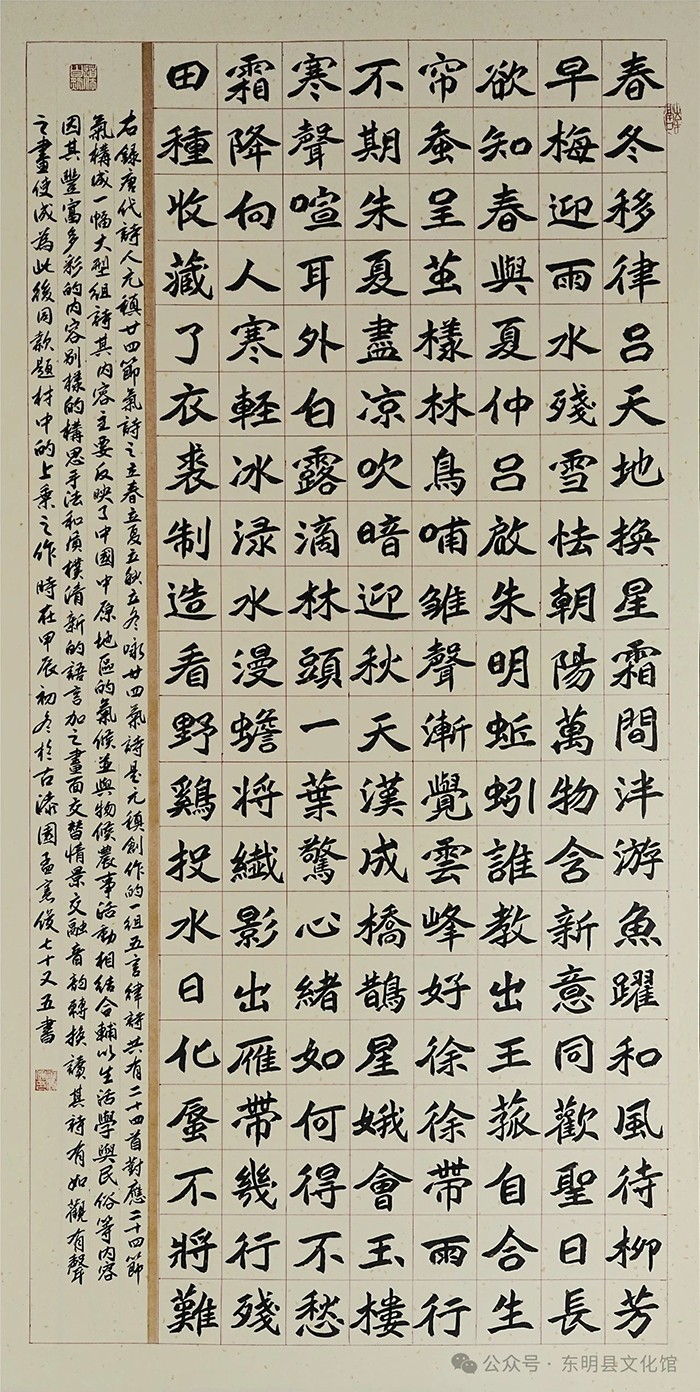 春冬移律吕天地換星霜間泮游魚躍和風待柳芳
早梅迎雨水殘雪怯朝陽萬物含新意同歡聖日長
欲知春與夏仲吕啟朱明蚯蚓誰教出王菰自合生
帘蚕呈茧樣林鳥哺雏聲漸覺雲峰好徐徐帶雨行
不期朱夏盡凉吹暗迎秋天漢成橋鵲星娥會玉樓
寒聲喧耳外白露滴林頭一葉驚心緒如何得不愁
霜降向人寒輕冰渌水漫蟾将纎影出雁帶幾行殘
田種收藏了衣裘制造看野鷄投水日化蜃不將難
右錄唐代詩人元稹廿四節氣詩之立春立夏立秋立冬咏廿四氣詩是元稹創作的一組五言律詩共有二十四首對應二十四節
氣構成一幅大型組詩其内容主要反映了中國中原地區的氣候並與物候農事活動相结合輔以生活學與民俗等内容
因其豐富多彩的内容别樣的構思手法和質樸清新的語言加之畫面交替情景交融音韵轉换讀其詩有如觀有聲
之畫使成為此後同款題材中的上乘之作時在甲辰初冬於古漆園孟憲俊七十又五書
公众号·东明县文化馆